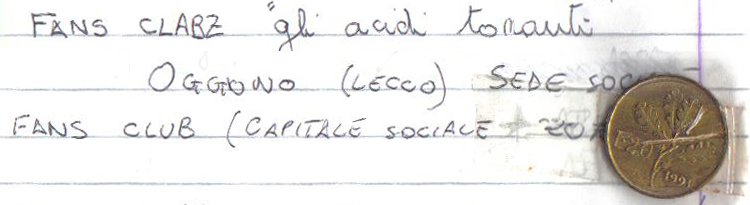 FANS CLABZ "gli acidi tonanti
OGGIONO (LECCO) SEDE
FANS CLUB (CAPITALE SOCIALE
1991